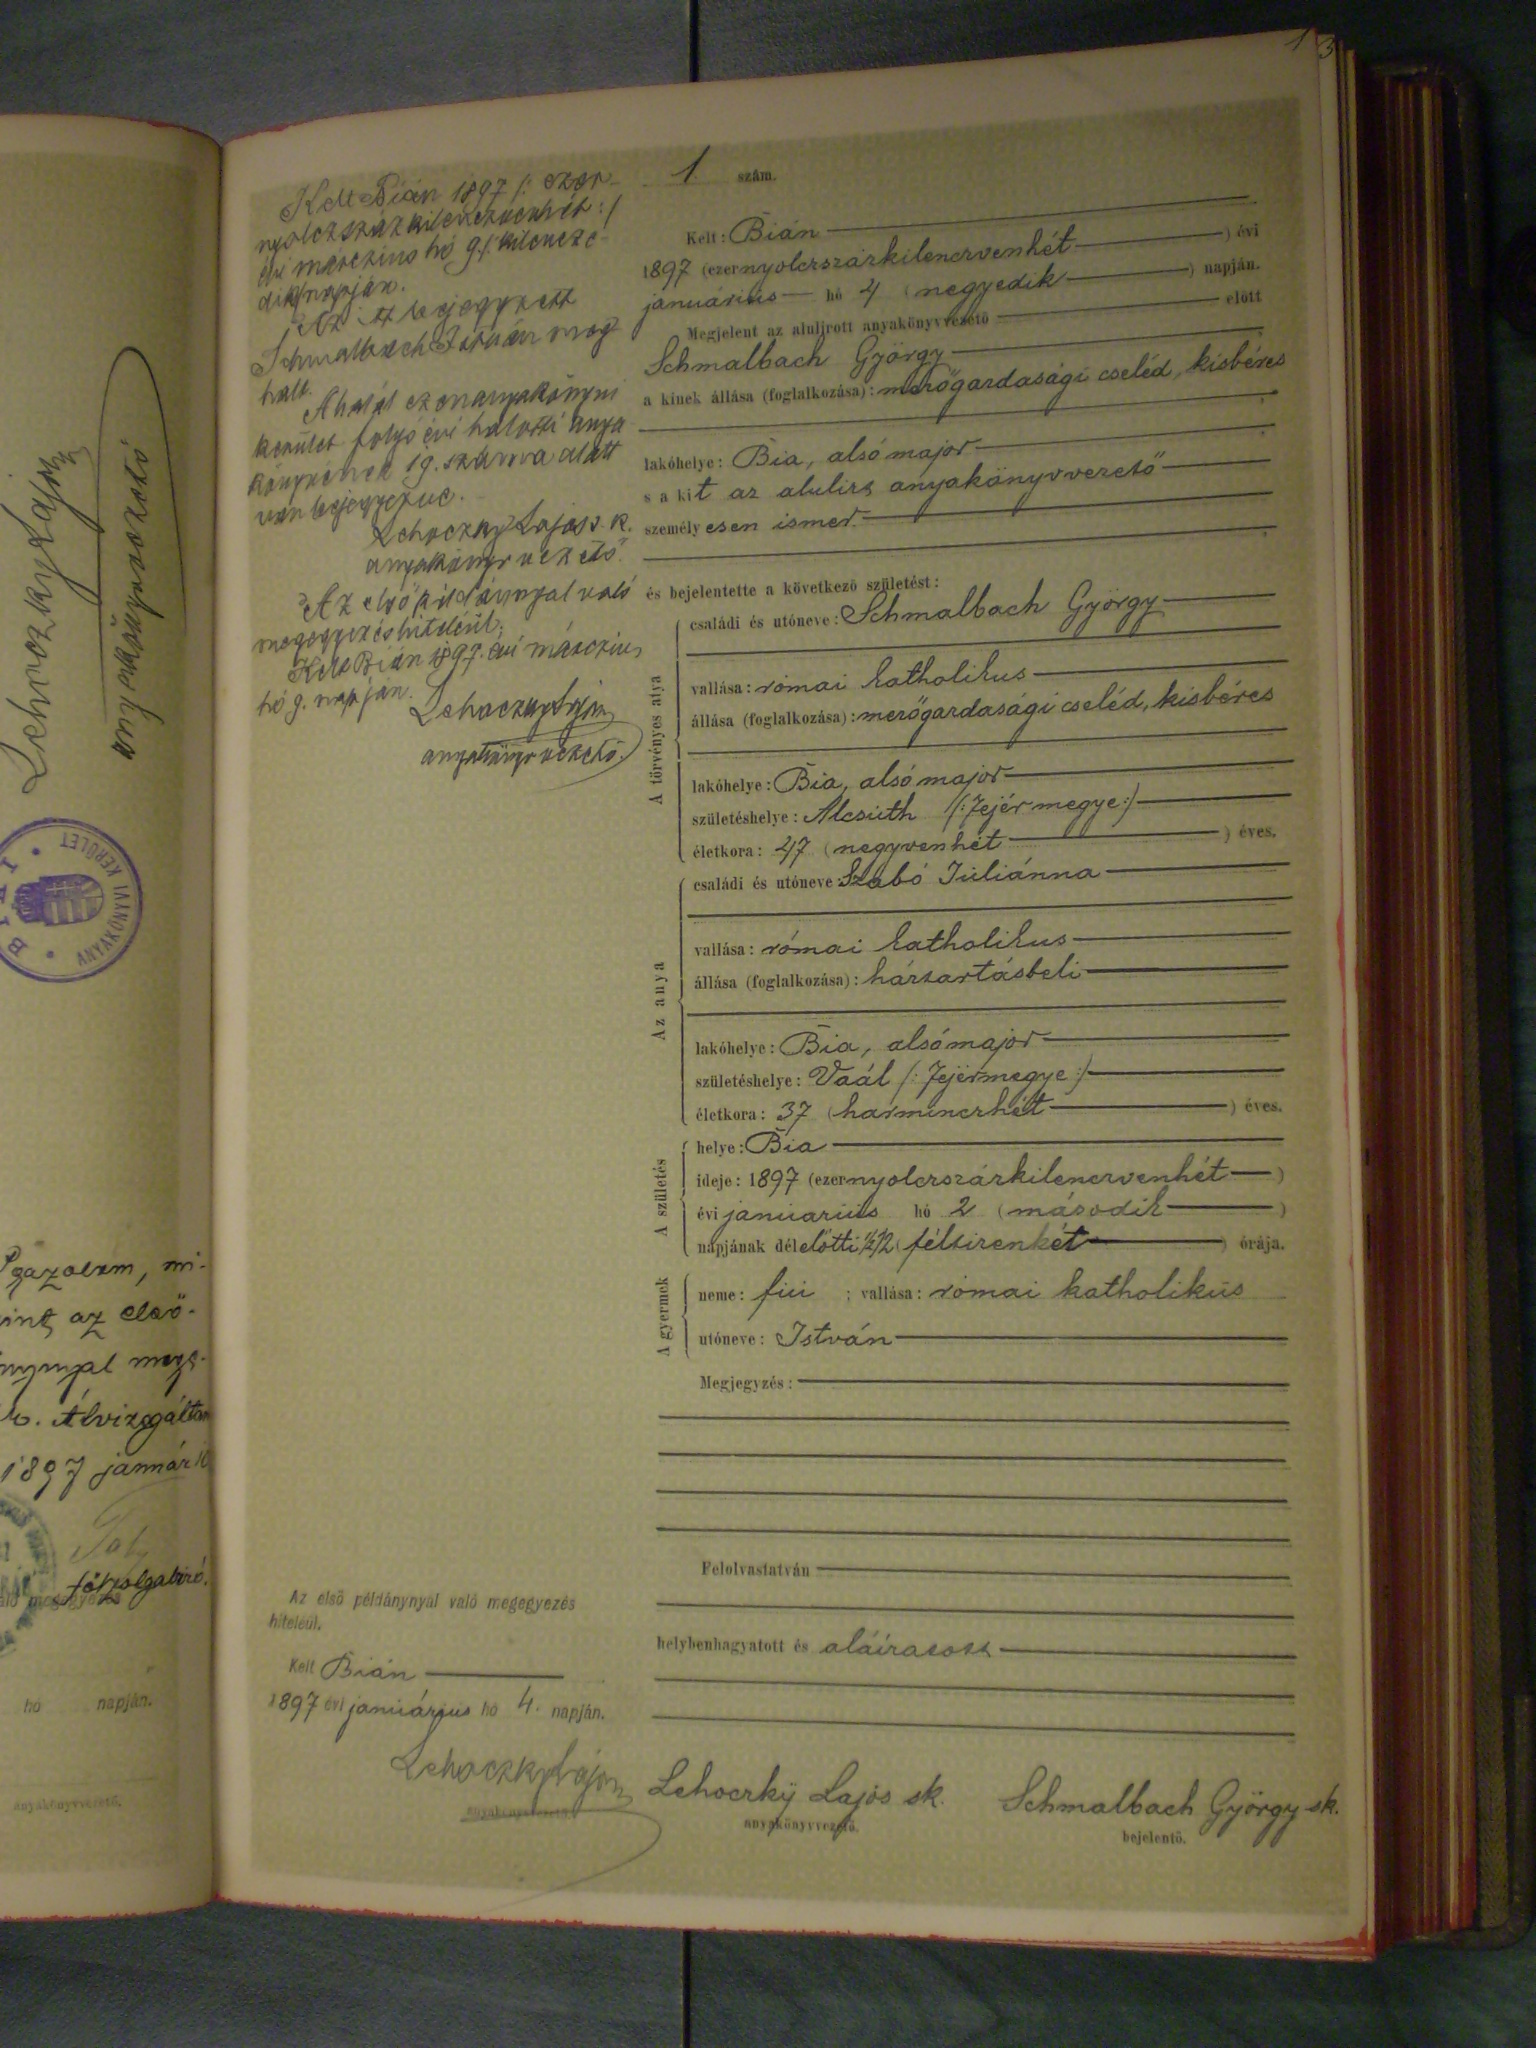 1
3
Kelt Bián 1897 /: ezer-
nyolczszázkilenczvenhét :/
évi marczius hó 9 /: kilencze-
dik/ napján.
Az itt bejegyzett
Schmalbach István meg
halt.
A halál ezen anyakönyvi
kerület folyó évi halotti anya
könyvének 19. száma alatt
van bejegyezve.
Lehoczky Lajos s. k.
anyakönyvvezető.
Az első példánnyal való
megegyezés hiteléül;
Kelt Bián 1897. évi márczius
hó 9. napján.
Lehoczky Lajos
anyakönyvvezető.
1 szám.
Kelt: Bián
1897 (ezernyolczszázkilenczvenhét ) évi
januárius hó 4 (negyedik ) napján.
Megjelent az alulirott anyakönyvvezető előtt
Schmalbach György
a kinek állása (foglalkozása): mezőgazdasági cseléd, kisbéres
lakóhelye: Bia, alsómajor
s a kit az alulirt anyakönyvvezető
személyesen ismer.
és bejelentette a következő születést:
A törvényes atya
családi és utóneve: Schmalbach György
vallása: római katholikus
állása (foglalkozása): mezőgazdasági cseléd, kisbéres
lakóhelye: Bia, alsómajor
születéshelye: Alcsúth /: Fejér megye :/
életkora: 47 (negyvenhét ) éves.
Az anya
családi és utóneve: Szabó Juliánna
vallása: római katholikus
állása (foglalkozása): háztartásbeli
lakóhelye: Bia, alsómajor
születéshelye: Vaál /: Fejérmegye :/
életkora: 37 (harminczhét ) éves.
A születés
helye: Bia
ideje: 1897 (ezernyolczszázkilenczvenhét )
évi januarius hó 2 (második )
napjának délelőtti ½2 (féltizenkét ) órája.
A gyermek
neme: fiú ; vallása: római katholikus
utóneve: István
Megjegyzés:
Felolvastatván
helybenhagyatott és aláíratott
Az első példánynyal való megegyezés
hiteléül.
Kelt Bián
1897 évi januárius hó 4. napján.
Lehoczky Lajos
anyakönyvvezető.
Lehoczky Lajos sk.
anyakönyvvezető.
Schmalbach György sk.
bejelentő.
Lehoczky Lajos
anyakönyvvezető
BIAI
ANYAKÖNYVI KERÜLET
Igazolom, mi-
int az első-
nynyal meg-
Átvizsgáltam
1897 január 10
főszolgabiró.
való megegyezés
hó napján.
anyakönyvvezető.